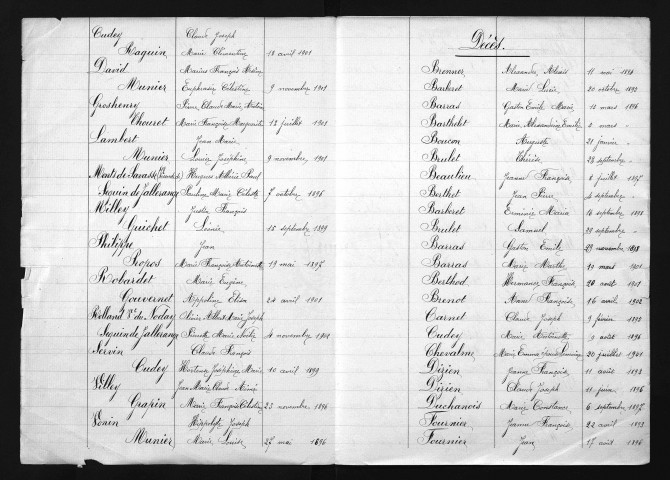 Cudey Claude Joseph
Raguin Marie Clémentine 18 avril 1901
David Marius François
Munier Euphrasie Célestine 9 novembre 1901
Groshenry Pierre Claude Marie
Thouret Marie Françoise Marguerite 13 juillet 1901
Lambert Jean Marie
Munier Louise Joséphine 9 novembre 1901
Hugues Paul
Seguin de Jallerange Pauline Marie 7 octobre 1896
Willey Justin François
Guichet Louise 16 septembre 1899
Philippe Jean
Propos Marie Françoise Antoinette 19 mai 1897
Robardet Marie Eugène
Gouvernet Hippoline Elisa 24 avril 1901
Rolland du Noday Albert Marie Joseph
Seguin de Jallerange Marie 4 novembre 1902
Servin Claude François
Cudey Hortense Joséphine Marie 10 avril 1899
Villey Jean Marie Claude
Grapin Marie Françoise Célestine 23 novembre 1896
Vonin Hippolyte Joseph
Munier Marie Louise 27 mai 1896
Décès.
Brenner Alexandre Alexis 11 mai 1896
Barberet Marie Lucie 20 octobre 1892
Barras Gaston Emile Marie 12 mars 1896
Barthelet Marie Alexandrine Emilie 2 mars "
Boucon Auguste 21 janvier "
Brulet Thérèse 28 septembre "
Beaulieu Jeanne Françoise 8 juillet 1897
Berthet Jean Pierre 4 septembre "
Barberet Erminie Maria 16 septembre 1898
Brulet Samuel 29 septembre "
Barras Gaston Emile 29 novembre 1898
Barras Marie Marthe 10 mars 1901
Berthod Hermance Françoise 20 août 1901
Brenot Anne Françoise 16 avril 1902
Carnet Claude Joseph 9 février 1893
Cudey Marie Antoinette 9 août 1896
Chevalme Marie Emma 20 juillet 1901
Dizien Jeanne Françoise 11 août 1893
Dizien Claude Joseph 11 juin 1896
Duchanois Marie Constance 6 septembre 1897
Fournier Jeanne Françoise 22 avril 1893
Fournier Jean 17 août 1896